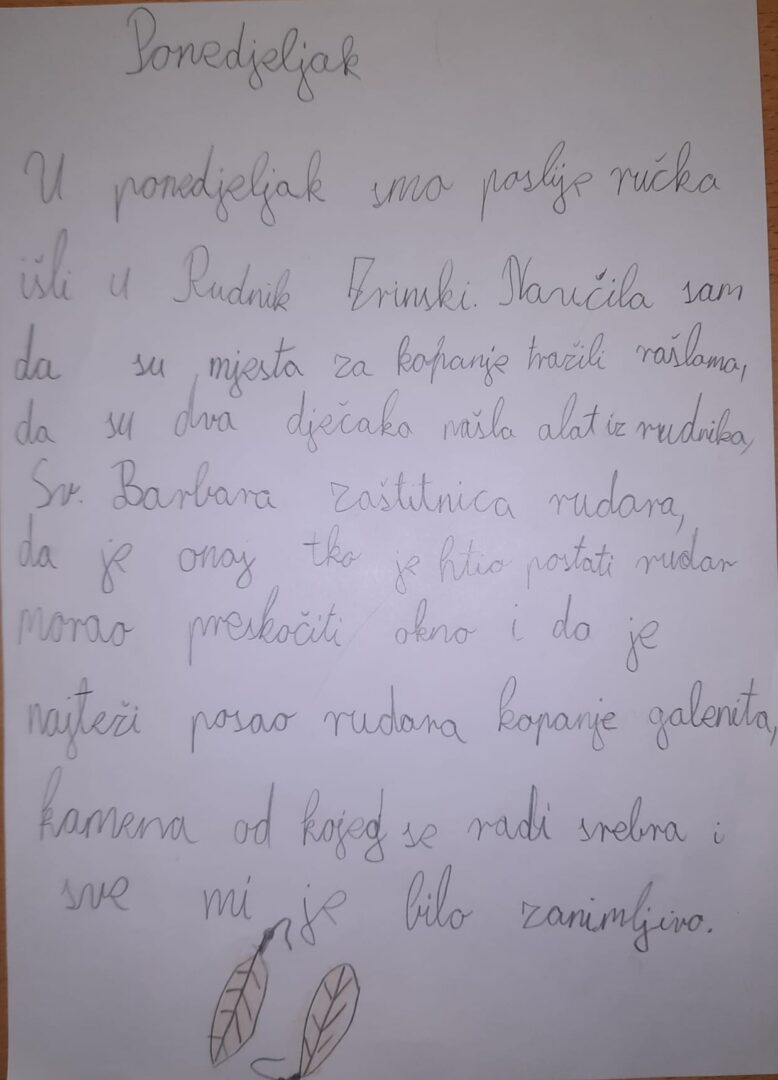 Ponedjeljak
U ponedjeljak smo poslije ručka
išli u Rudnik Zrinski. Naručila sam
da su mjesta za kopanje tražili rašlama,
da su dva dječaka našla alat iz rudnika,
Sv. Barbara zaštitnica rudara,
da je onaj tko je htio postati rudar
morao preskočiti okno i da je
najteži posao rudara kopanje galenita,
kamena od kojeg se radi srebra i
sve mi je bilo zanimljivo.